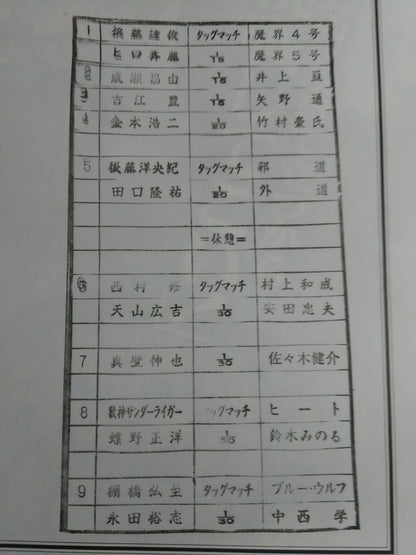 1 後藤達俊 タッグマッチ 魔界4号
ヒロ斉藤 1/15 魔界5号
2 成瀬昌由 1/15 井上亘
3 吉江豊 1/15 矢野通
4 金本浩二 1/20 竹村豪氏
5 後藤洋央紀 タッグマッチ 邪道
田口隆祐 1/20 外道
=休憩=
6 西村修 タッグマッチ 村上和成
天山広吉 1/30 安田忠夫
7 真壁伸也 1/30 佐々木健介
8 獣神サンダーライガー タッグマッチ ヒート
蝶野正洋 1/30 鈴木みのる
9 棚橋弘至 タッグマッチ ブルー・ウルフ
永田裕志 1/30 中西学